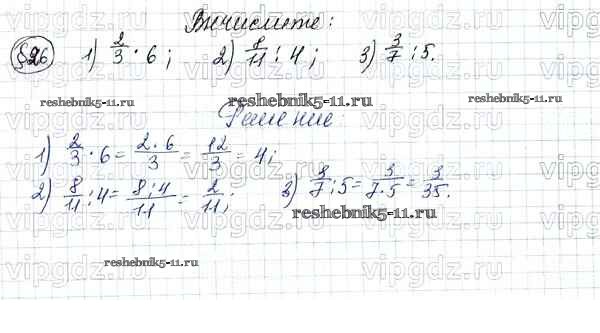 Вычислите:
§26 1) 2/3 · 6; 2) 8/11 : 4; 3) 3/7 : 5.
reshebnik5-11.ru reshebnik5-11.ru
Решение:
1) 2/3 · 6 = 2·6/3 = 12/3 = 4;
2) 8/11 : 4 = 8:4/11 = 2/11; 3) 3/7 : 5 = 3/7·5 = 3/35.
reshebnik5-11.ru
reshebnik5-11.ru
vipgdz.ru vipgdz.ru vipgdz.ru vipgdz.ru